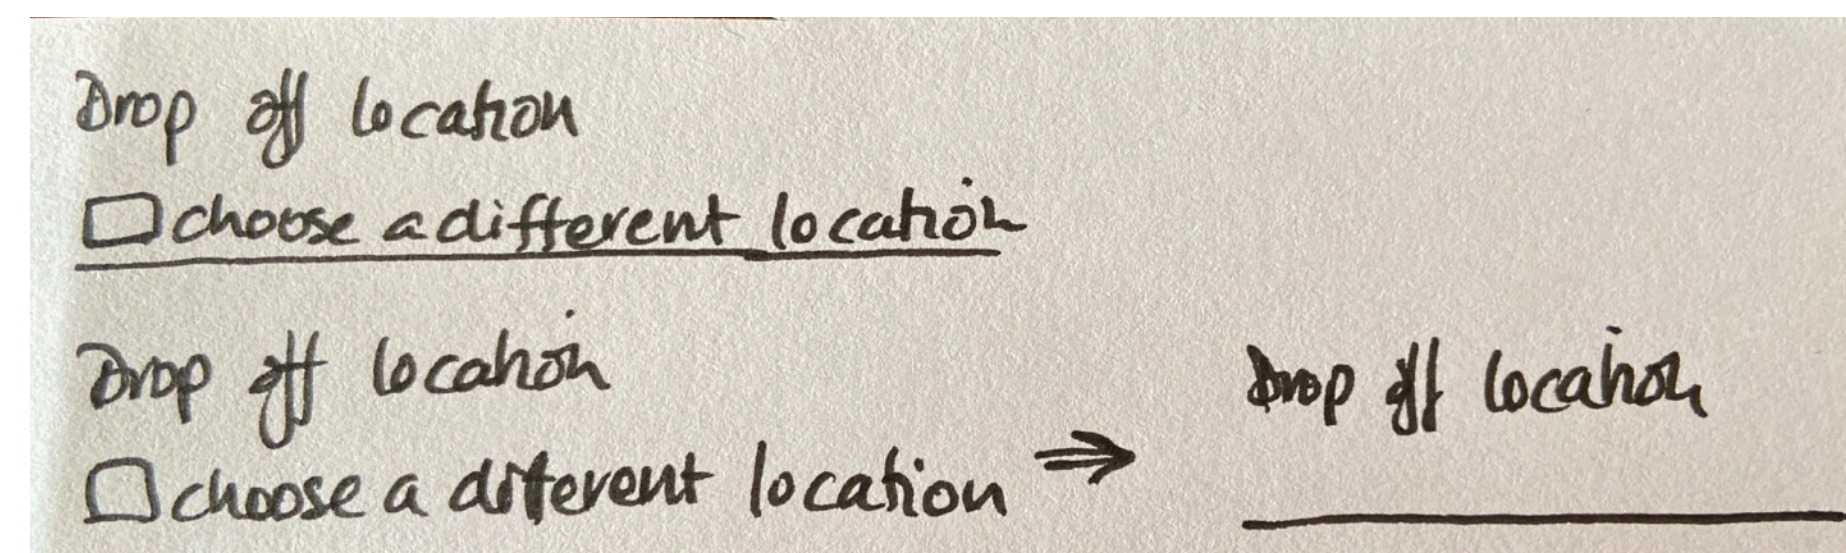 Drop off location
choose a different location
Drop off location
choose a diferent location ⇒
Drop off location